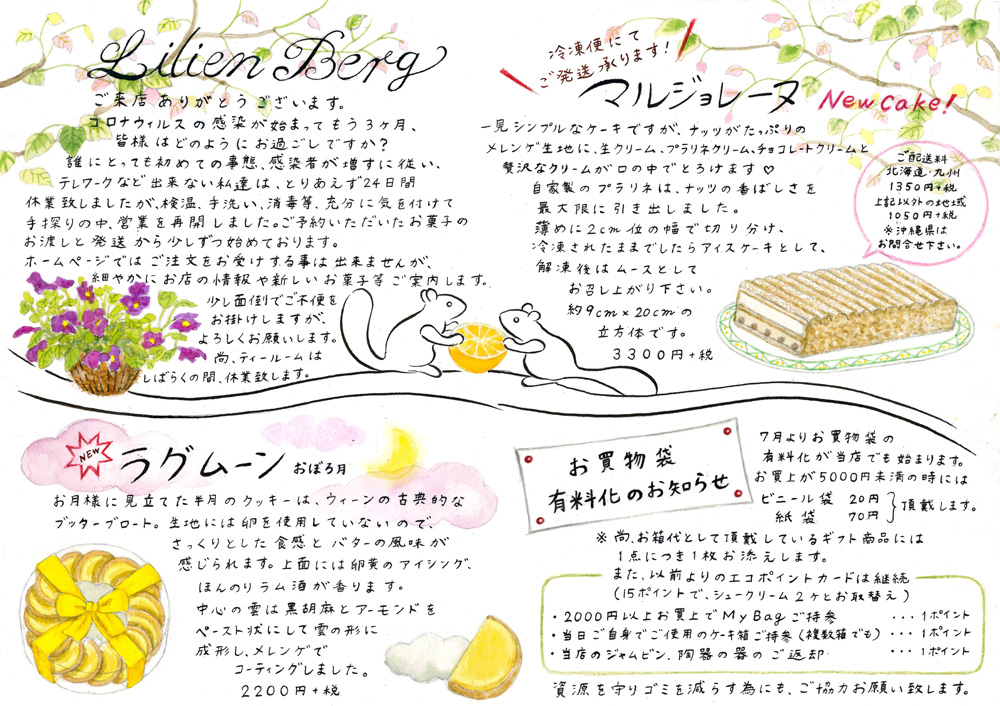 Lilien Berg
ご来店ありがとうございます。
コロナウィルスの感染が始まってもう3ヶ月、
皆様はどのようにお過ごしですか?
誰にとっても初めての事態、感染者が増すに従い、
テレワークなど出来ない私達は、とりあえず24日間
休業致しましたが、検温、手洗い、消毒等、充分に気を付けて
手探りの中、営業を再開しました。ご予約いただいたお菓子の
お渡しと発送から少しずつ始めております。
ホームページではご注文をお受けする事は出来ませんが、
細やかにお店の情報や新しいお菓子等ご案内します。
少し面倒でご不便を
お掛けしますが、
よろしくお願いします。
尚、ティールームは
しばらくの間、休業致します。
冷凍便にて
ご発送承ります!
マルジョレーヌ New Cake!
一見シンプルなケーキですが、ナッツがたっぷりの
メレンゲ生地に、生クリーム、プラリネクリーム、チョコレートクリームと
贅沢なクリームが口の中でとろけます♡
自家製のプラリネは、ナッツの香ばしさを
最大限に引き出しました。
薄めに2cm位の幅で切り分け、
冷凍されたままでしたらアイスケーキとして、
解凍後はムースとして
お召し上がり下さい。
約9cm×20cmの
立方体です。
3300円+税
ご配送料
北海道・九州
1350円+税
上記以外の地域
1050円+税
※沖縄県は
お問合せ下さい。
NEW
ラグムーン おぼろ月
お月様に見立てた半月のクッキーは、ウィーンの古典的な
ブッターブロート。生地には卵を使用していないので、
さっくりとした食感とバターの風味が
感じられます。上面には卵黄のアイシング、
ほんのりラム酒が香ります。
中心の雲は黒胡麻とアーモンドを
ペースト状にして雲の形に
成形し、メレンゲで
コーティングしました。
2200円+税
お買物袋
有料化のお知らせ
7月よりお買物袋の
有料化が当店でも始まります。
お買上が5000円未満の時には
ビニール袋 20円
紙袋 70円 } 頂戴します。
※尚、お箱代として頂戴しているギフト商品には
1点につき1枚お添えします。
また、以前よりのエコポイントカードは継続
(15ポイントで、シュークリーム2ヶとお取替え)
・2000円以上お買上でMy Bagご持参 ・・・1ポイント
・当日ご自身でご使用のケーキ箱ご持参(複数箱でも) ・・・1ポイント
・当店のジャムビン、陶器の器のご返却 ・・・1ポイント
資源を守りゴミを減らす為にも、ご協力お願い致します。